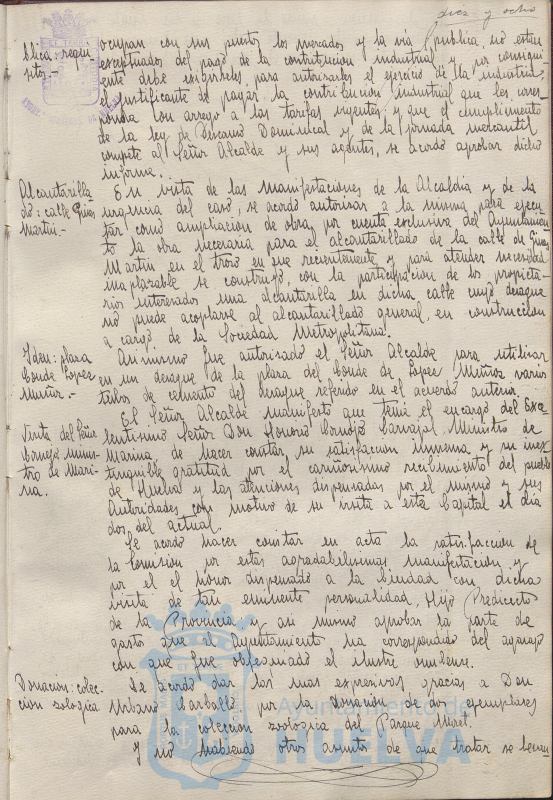 diez y ocho
blica: requi-
sitos.-
ocupan con sus puestos los mercados y la via publica, no estan
exceptuados del pago de la contribucion industrial y por consigui-
ente debe exigirseles, para autorizarles el ejercicio de la industria,
el justificante de pagar la contribucion industrial que les corres-
ponda con arreglo a las tarifas vigentes; y que el cumplimiento
de la ley de Descanso Dominical y de la jornada mercantil
compete al Señor Alcalde y sus agentes, se acordo aprobar dicho
informe.
Alcantarilla
do: calle Ginés
Martin.-
En vista de las manifestaciones de la Alcaldia y de la
urgencia del caso, se acordo autorizar a la misma para ejecu-
tar como ampliacion de obra, por cuenta exclusiva del Ayuntamien-
to la obra necesaria para el alcantarillado de la calle de Ginés
Martin en el trozo en que recientemente y para atender necesidad
inaplazable se construyó, con la participacion de los propieta-
rios interesados una alcantarilla en dicha calle cuyo desague
no puede acoplarse al alcantarillado general, en construccion
a cargo de la Sociedad Metropolitana.
Iden: plaza
Conde Lopez
Muñoz.-
Asimismo fue autorizado el Señor Alcalde para utilizar
en un desague de la plaza del Conde de Lopez Muñoz varios
tubos de cemento del desague referido en el acuerdo anterior.
Visita del Señor
Cornejo minis-
tro de Mari-
na.
El Señor Alcalde manifestó que tenia el encargo del Exce
lentisimo Señor Don Honorio Cornejo Carvajal Ministro de
Marina, de hacer constar su satisfaccion inmensa y su inex-
tinguible gratitud por el cariñosisimo recibimiento del pueblo
de Huelva y las atenciones dispensadas por el mismo y sus
Autoridades con motivo de su visita a esta Capital el dia
dos del actual.
Se acordo hacer constar en acta la satisfaccion de
la Comision por estas agradabilisimas manifestacion y
por el honor dispensado a la Ciudad con dicha
visita de tan eminente personalidad, Hijo Predilecto
de la Provincia y asi mismo aprobar la parte de
gasto que al Ayuntamiento ha correspondido del agasajo
con que fue obsequiado el ilustre
Donacion: colec-
cion zoologica
Se acordó dar las mas expresivas gracias a Don
Urbano Carballo por la donacion de dos ejemplares
para la coleccion zoologica del Parque Moret.
Y no habiendo otros asuntos de que tratar se levan-
Ayuntamiento de
HUELVA